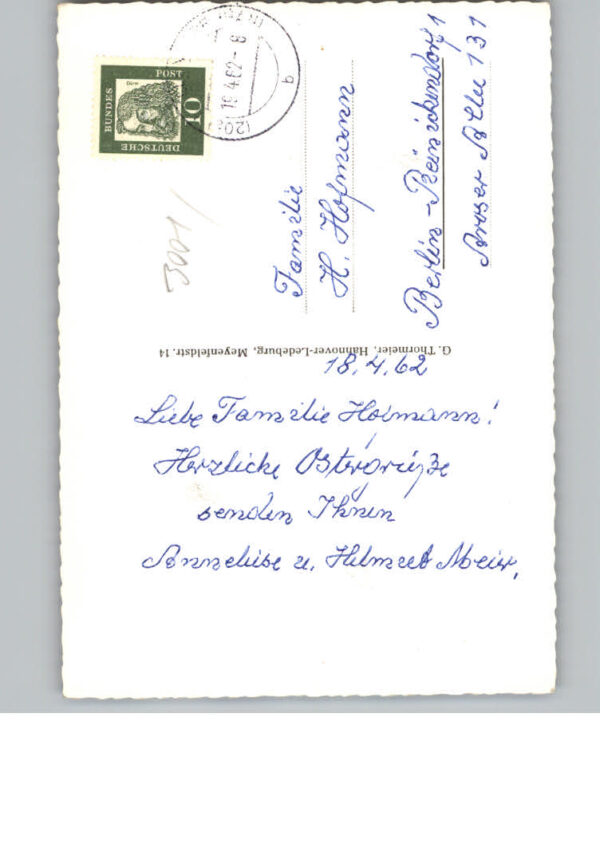 DEUTSCHE
BUNDES
POST
10
18.4.62-8
(20a)
b
3001/
Familie
H. Hofmann
Berlin-Reinickendorf 1
Aroser Allee 131
G. Thormeier, Hannover-Ledeburg, Meyenfeldstr. 14
18.4.62
Liebe Familie Hofmann!
Herzliche Ostergrüße
senden Ihnen
Anneliese u. Helmut Meier.